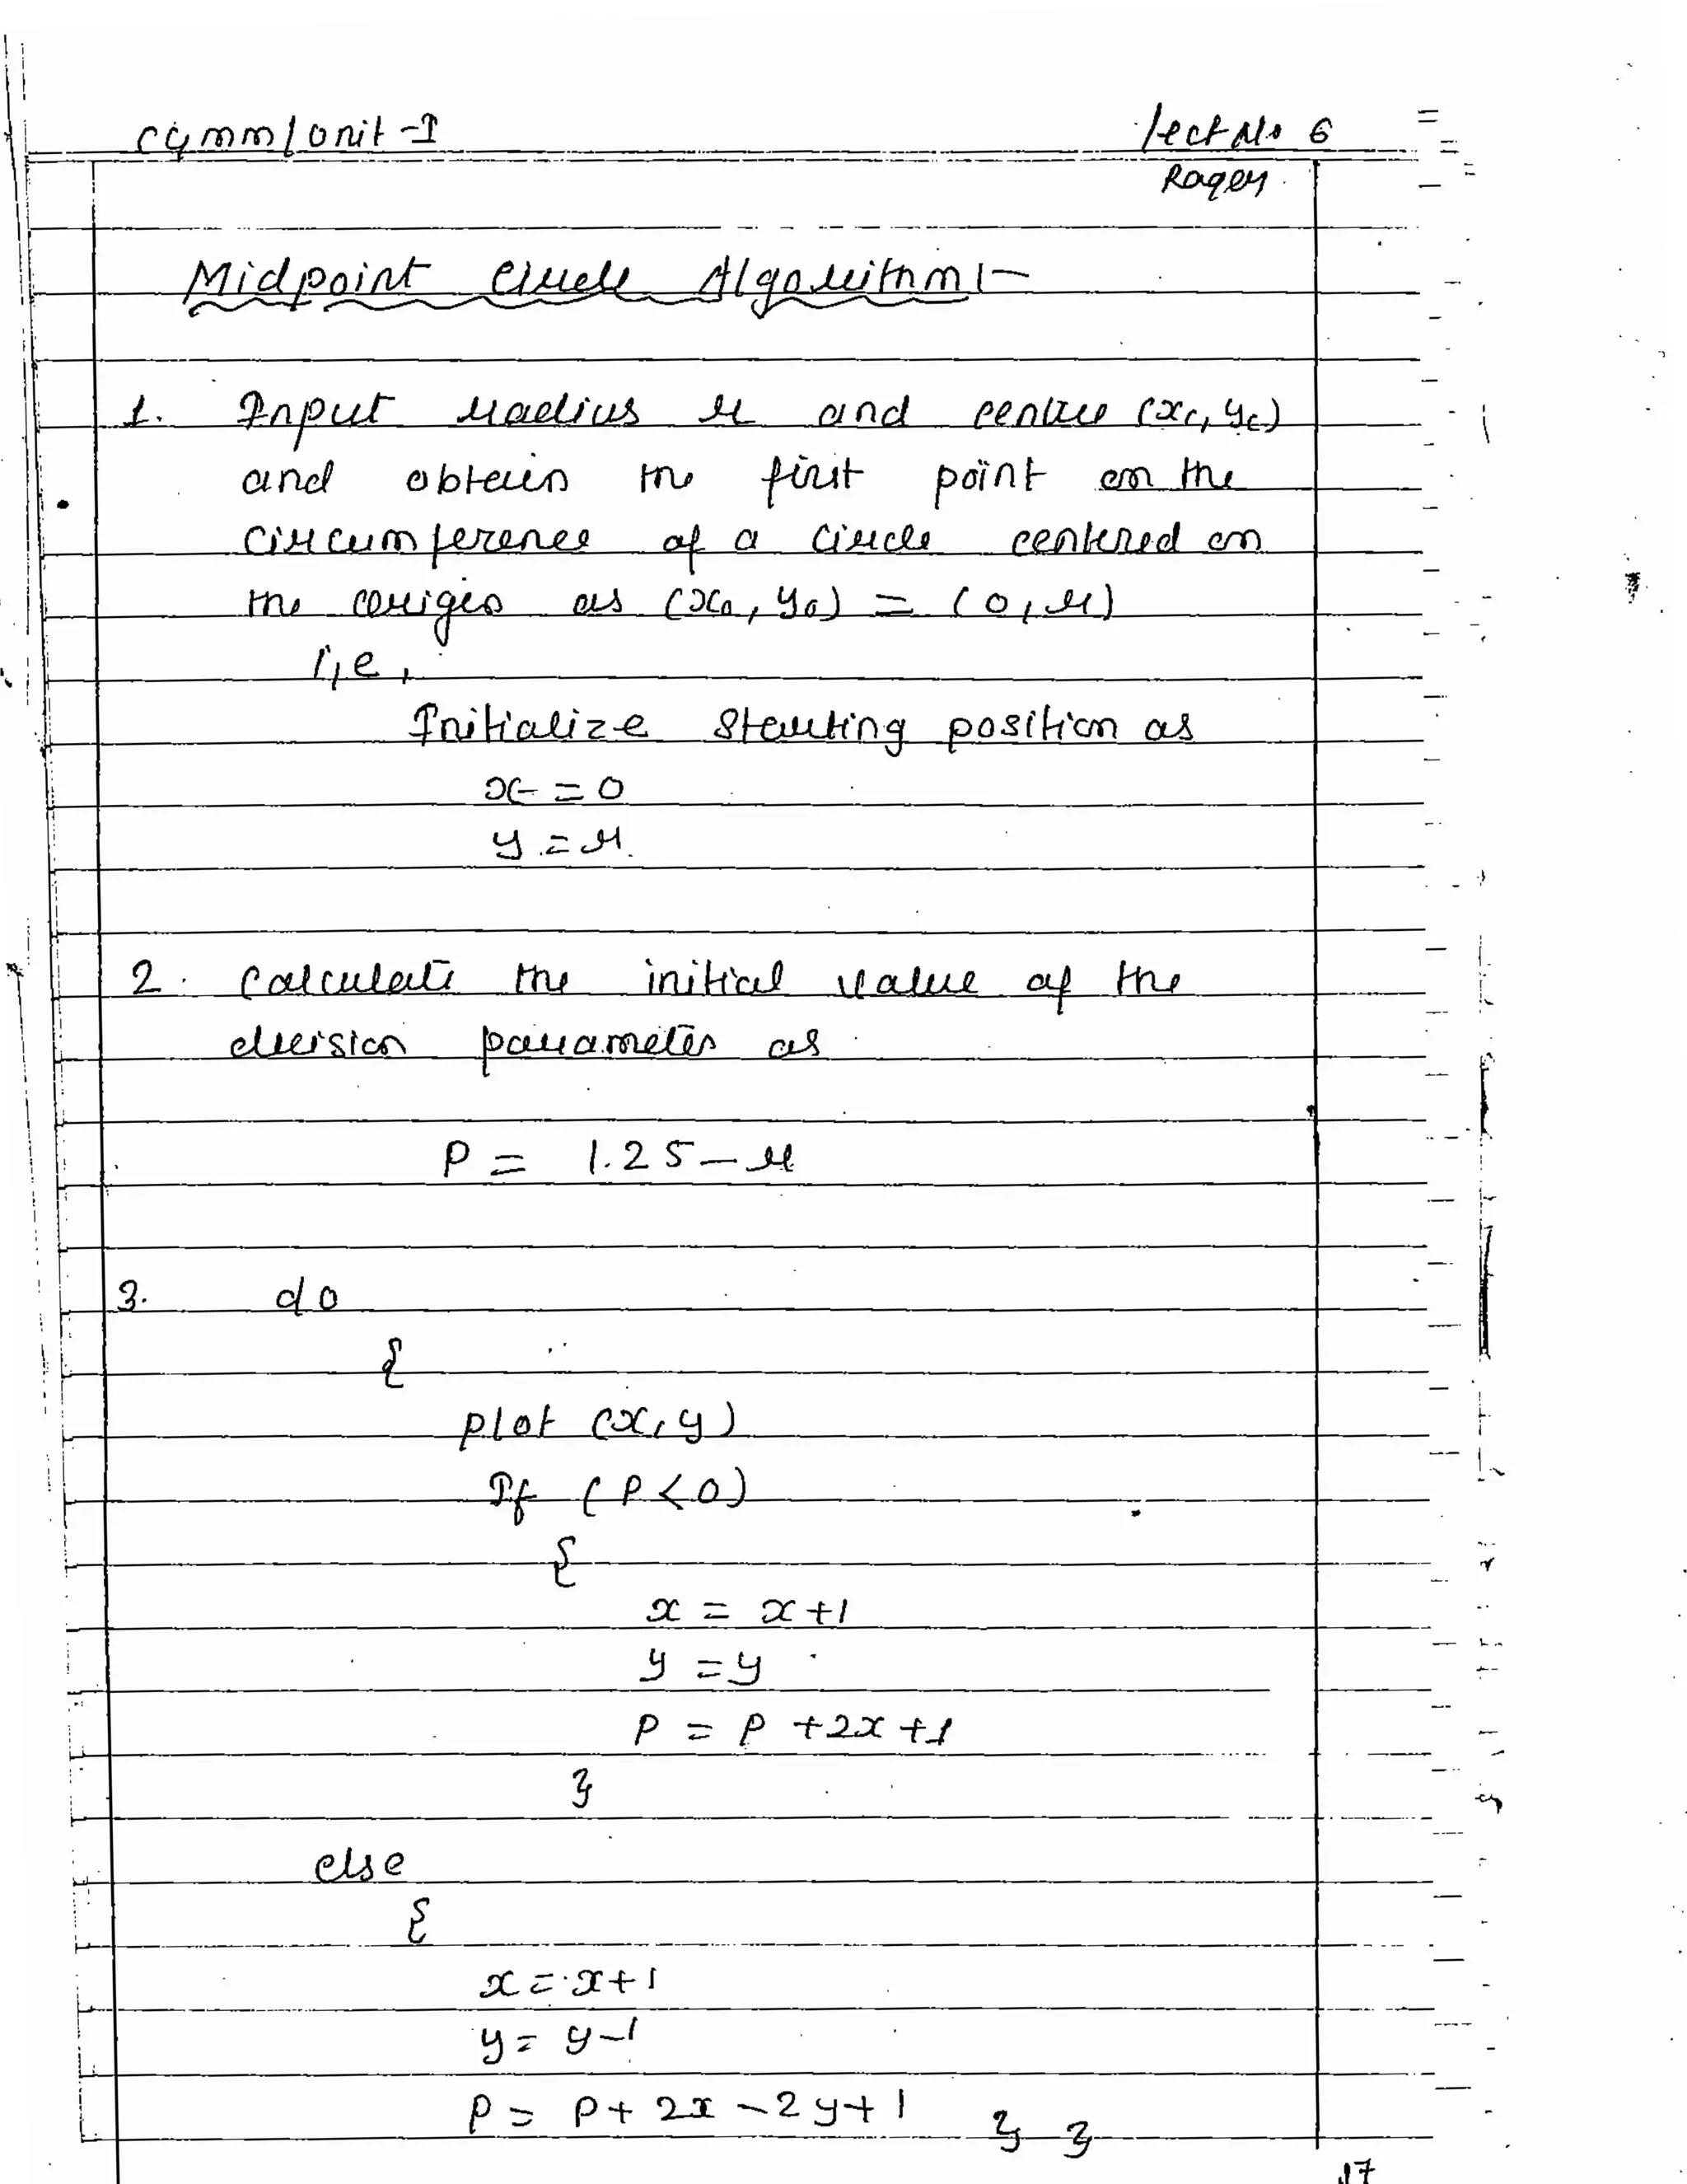 CGMM/Unit-I
Lect No 6
Midpoint Circle Algorithm:-
1. Input radius r and centre (xc, yc)
and obtain the first point on the
circumference of a circle centered on
the origin as (x0, y0) = (0, r)
i,e,
Initialize starting position as
x = 0
y = r
2. Calculate the initial value of the
decision parameter as
P = 1.25 - r
3. do
{
plot (x, y)
If (P < 0)
{
x = x+1
y = y
P = P + 2x + 1
}
else
{
x = x+1
y = y-1
P = P + 2x - 2y + 1 } }
17